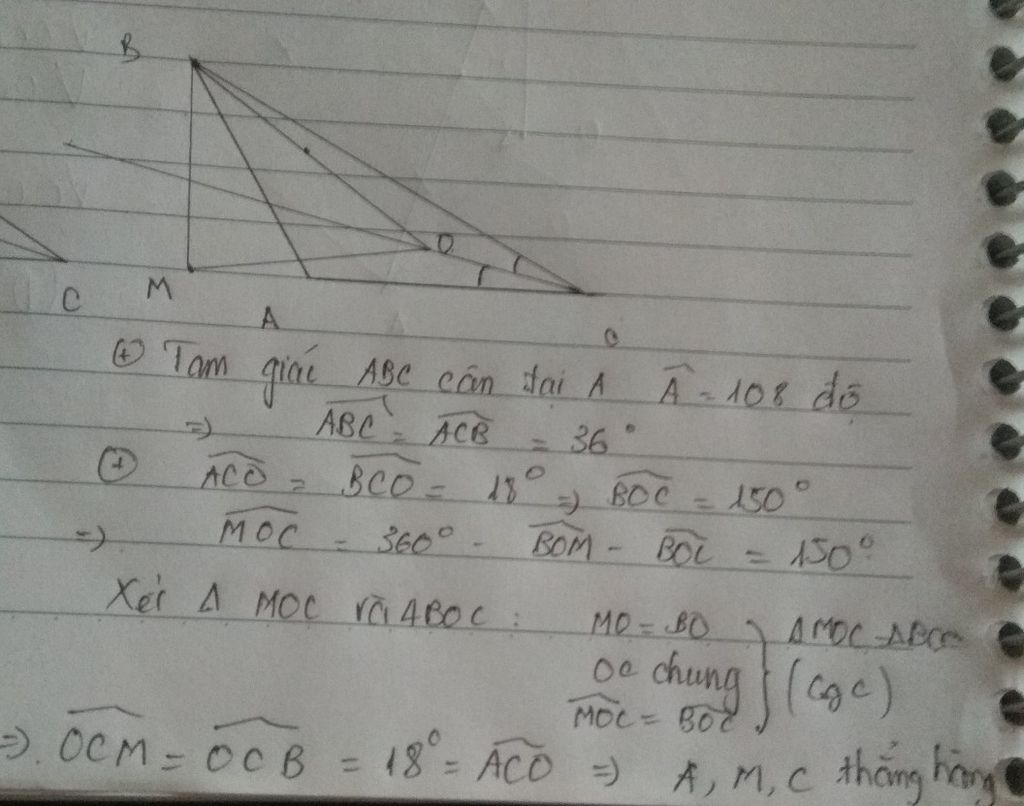 B
O
C M
A
C
⊕ Tam giác ABC cân tại A Â = 108 độ
=> ABC = ACB = 36°
⊕ ACO = BCO = 18° => BOC = 150°
=> MOC = 360° - BOM - BOC = 150°
Xét Δ MOC và ΔBOC : MO = BO } ΔMOC = ΔBOC
OC chung } (cgc)
MOC = BOC }
=> OCM = OCB = 18° = ACO => A, M, C thẳng hàng